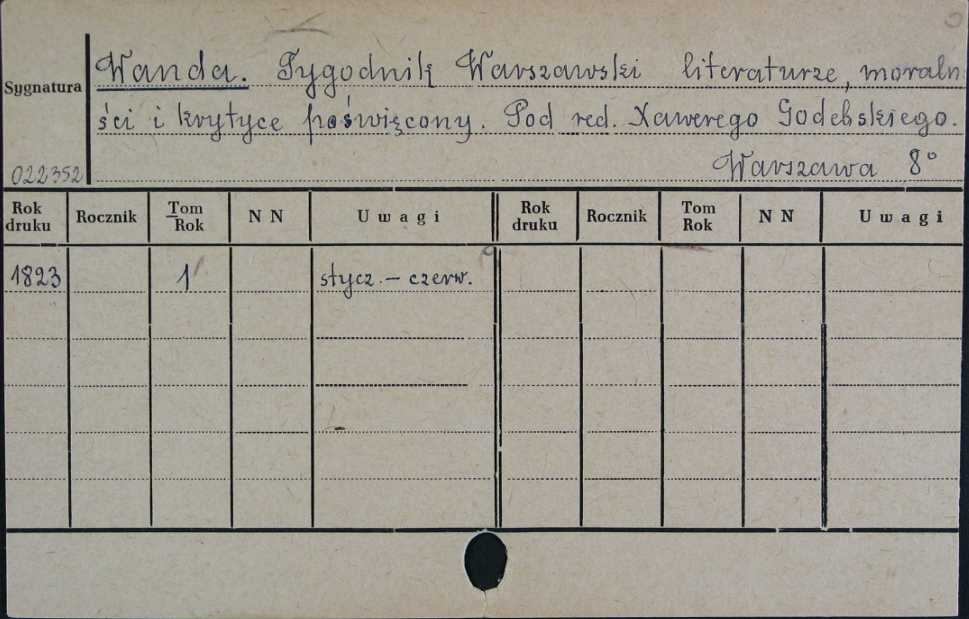 Wanda. Tygodnik Warszawski literaturze, moraln
Sygnatura
ści i krytyce poświęcony. Pod red. Xawerego Godebskiego.
022352 Warszawa 8°
Rok druku Rocznik Tom Rok N N Uwagi Rok druku Rocznik Tom Rok N N Uwagi
1823 1 stycz. – czerw.